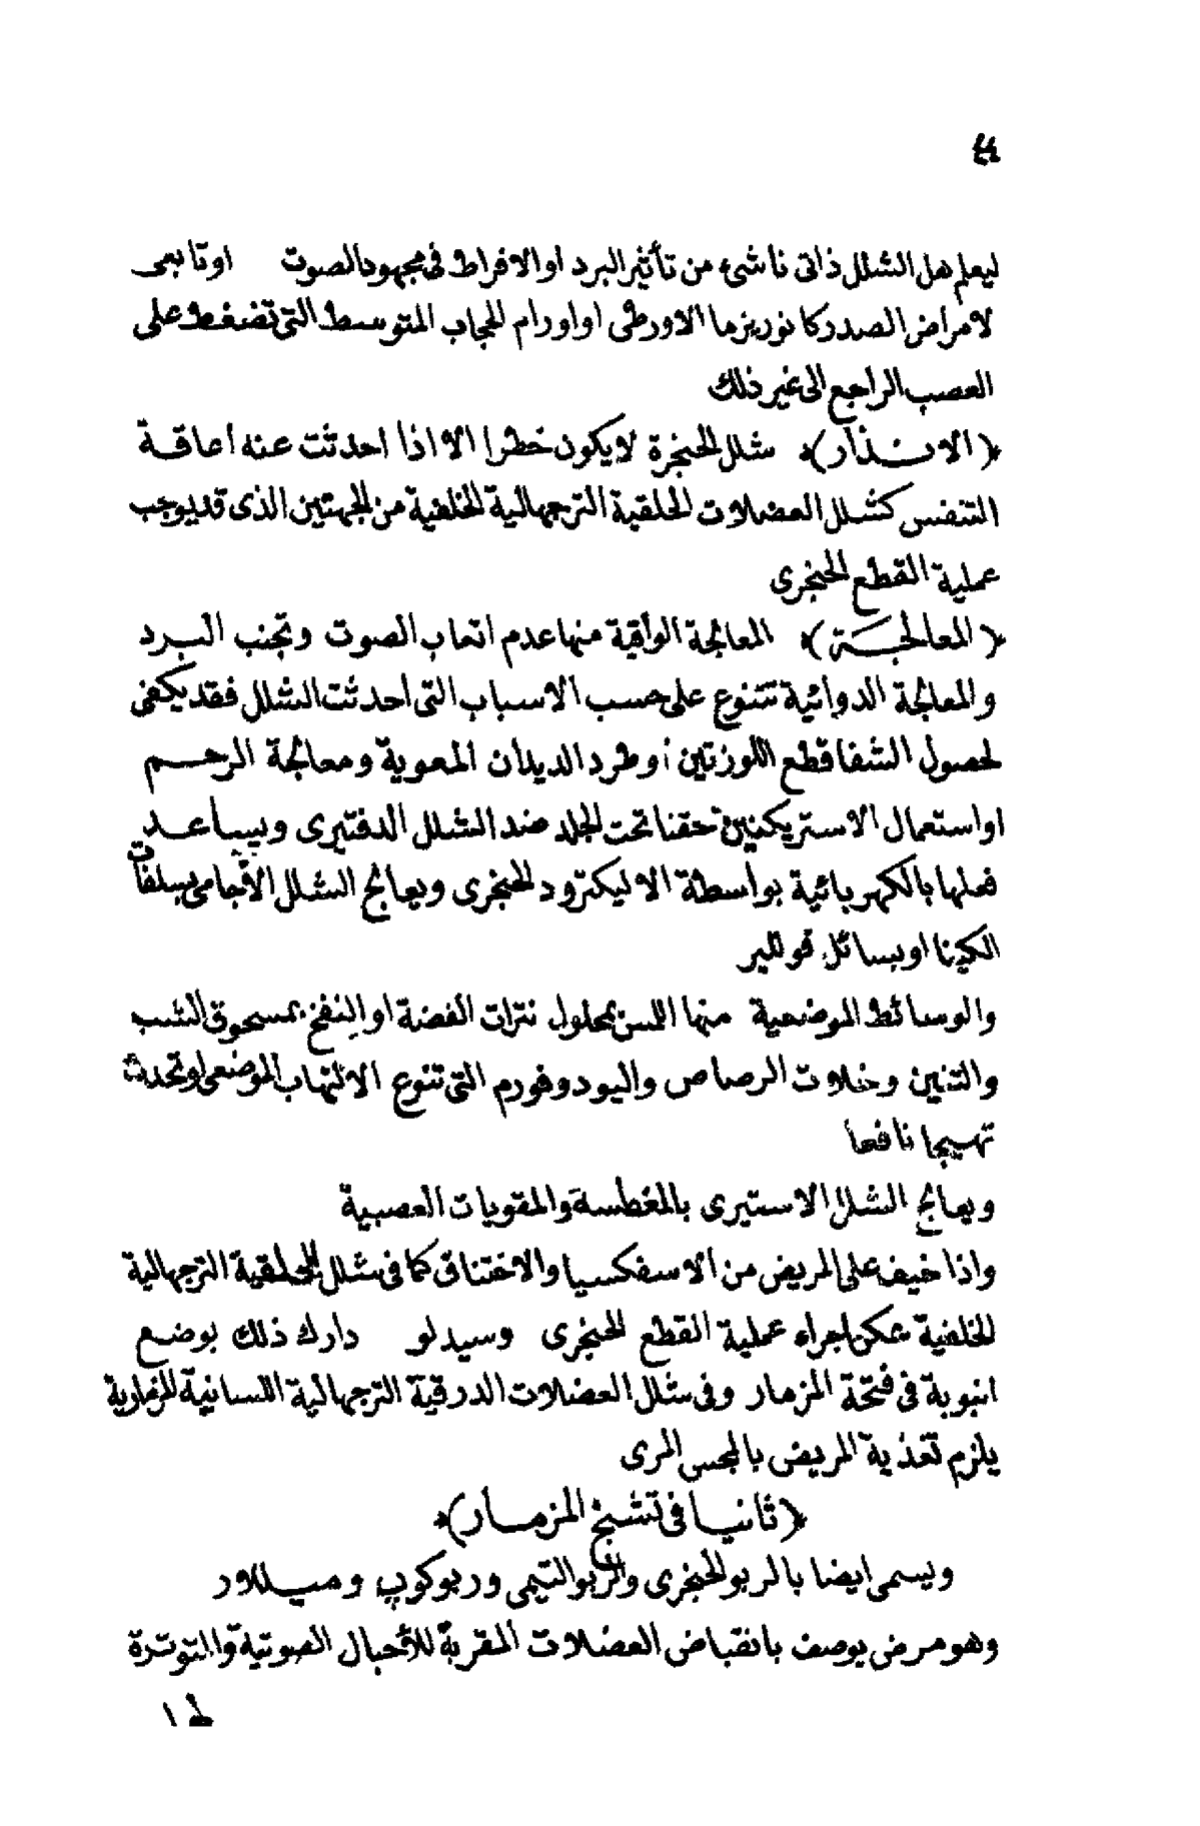 ليعلم هل الشلل ذاتى ناشىء من تأثير البرد او الافراط فى مجهود الصوت اوتابعى
لامراض الصدر كانوريزما الاورطى او اورام الحجاب المتوسط التى تضغط على
العصب الراجع الى غير ذلك
﴿الانــذار﴾ شلل الحنجرة لايكون خطرا الا اذا احدثت عنه اعاقة
التنفس كشلل العضلات الحلقية الترجهالية الخلفية من الجهتين الذى قد يوجب
عملية القطع الحنجرى
﴿المعالجــة﴾ المعالجة الواقية منها عدم اتعاب الصوت وتجنب البرد
والمعالجة الدوائية تتنوع على حسب الاسباب التى احدثت الشلل فقد يكفى
لحصول الشفا قطع اللوزتين أوطرد الديدان المعوية ومعالجة الرحــم
او استعمال الاستريكنين حقنا تحت الجلد ضد الشلل الدفتيرى ويساعــد
فعلها بالكهربائية بواسطة الاليكترود الحنجرى ويعالج الشلل الاجامى بسلفات
الكينا او بسائل فوللير
والوسائط الموضعية منها اللمس بمحلول نترات الفضة او النفخ بمسحوق الشب
والتنين وخلات الرصاص واليودوفورم التى تنوع الالتهاب الموضعى اوتحدث
تهيجا نافعا
ويعالج الشلل الاستيرى بالمغطسة والمقويات العصبية
واذا خيف على المريض من الاسفكسيا والاختناق كما فى شلل الحلقية الترجهالية
الخلفية يمكن اجراء عملية القطع الحنجرى وسيدلو دارك ذلك بوضع
انبوبة فى فتحة المزمار وفى شلل العضلات الدرقية الترجهالية اللسانية المزمارية
يلزم تغذية المريض بالمجس المرى
﴿ثانيــا فى تشنج المزمــار﴾
ويسمى ايضا بالربو الحنجرى والربو التيمى وربوكوب وميــللار
وهو مرض يوصف بانقباض العضلات المقربة للأحبال الصوتية والتوترة